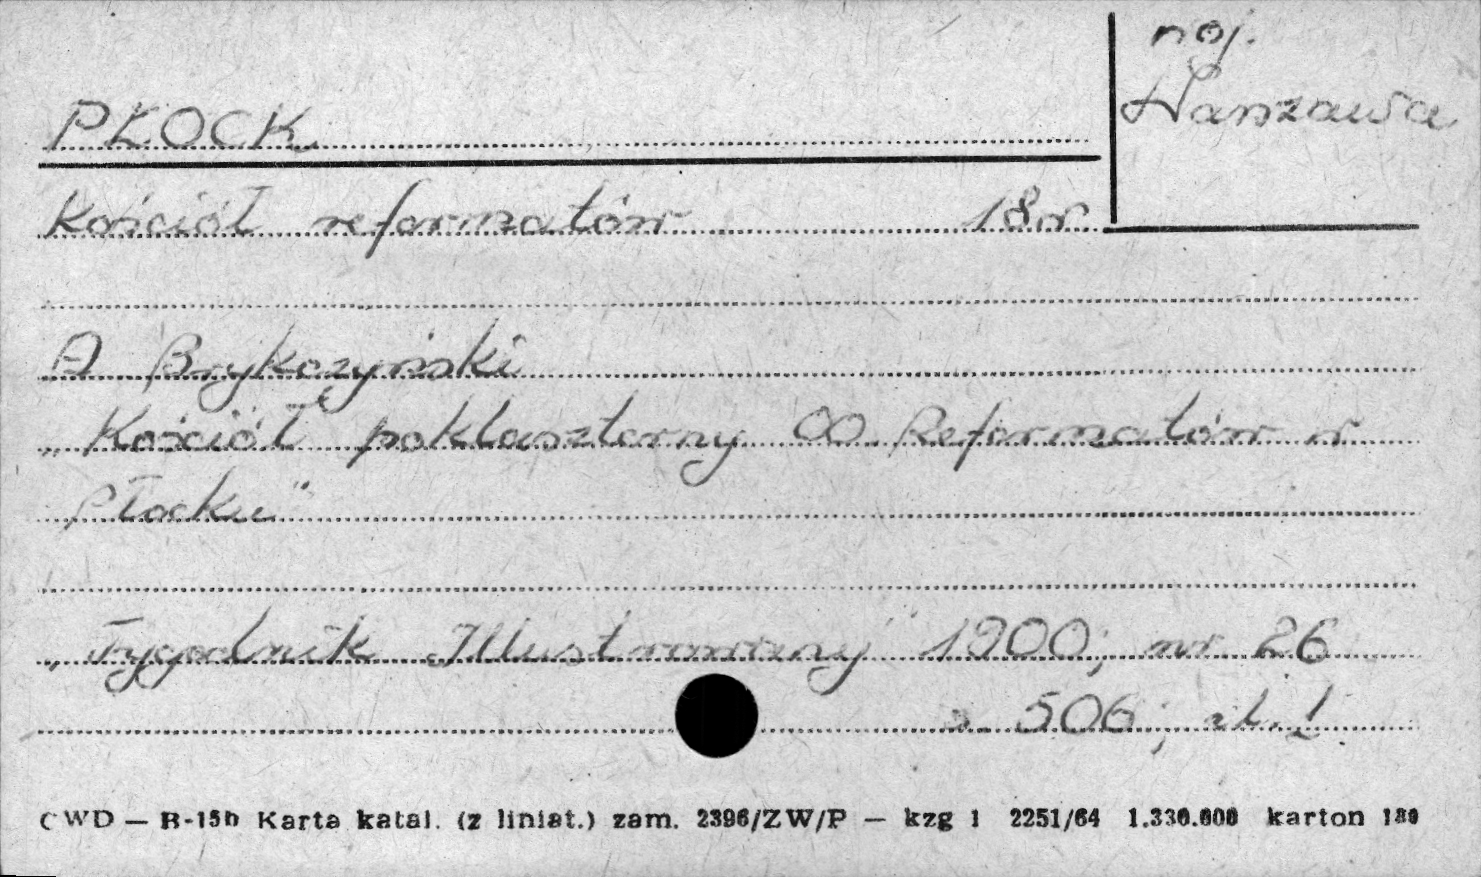 woj.
Warszawa
PŁOCK
Kościół reformatów 18w.
A Brykczyński
„Kościół poklasztorny OO. Reformatów w
Płocku"
„Tygodnik Illustrowany" 1900; nr 26
s. 506; il. 1
CWD — B-15b Karta katal. (z liniat.) zam. 2396/ZW/P — kzg 1 2251/64 1.330.000 karton 180